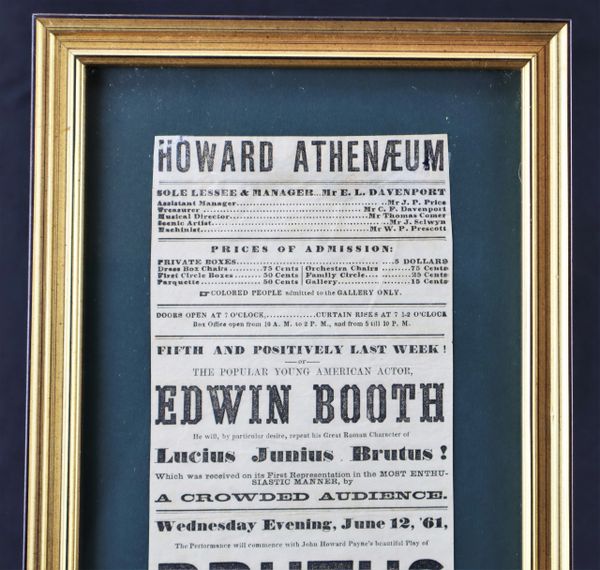 HOWARD ATHENÆUM
SOLE LESSEE & MANAGER...Mr E. L. DAVENPORT
Assistant Manager....................Mr J. P. Price
Treasurer....................Mr C. F. Davenport
Musical Director....................Mr Thomas Comer
Scenic Artist....................Mr J. Selwyn
Machinist....................Mr W. P. Prescott
PRICES OF ADMISSION:
PRIVATE BOXES....................5 DOLLARS
Dress Box Chairs........75 Cents | Orchestra Chairs........75 Cents
First Circle Boxes........50 Cents | Family Circle........25 Cents
Parquette........50 Cents | Gallery........15 Cents
☞COLORED PEOPLE admitted to the GALLERY ONLY.
DOORS OPEN AT 7 O'CLOCK,............CURTAIN RISES AT 7 1-2 O'CLOCK
Box Office open from 10 A. M. to 2 P. M., and from 5 till 10 P. M.
FIFTH AND POSITIVELY LAST WEEK!
—or—
THE POPULAR YOUNG AMERICAN ACTOR,
EDWIN BOOTH
He will, by particular desire, repeat his Great Roman Character of
Lucius Junius Brutus!
Which was received on its First Representation in the MOST ENTHU-
SIASTIC MANNER, by
A CROWDED AUDIENCE.
Wednesday Evening, June 12, '61,
The Performance will commence with John Howard Payne's beautiful Play of
BRUTUS